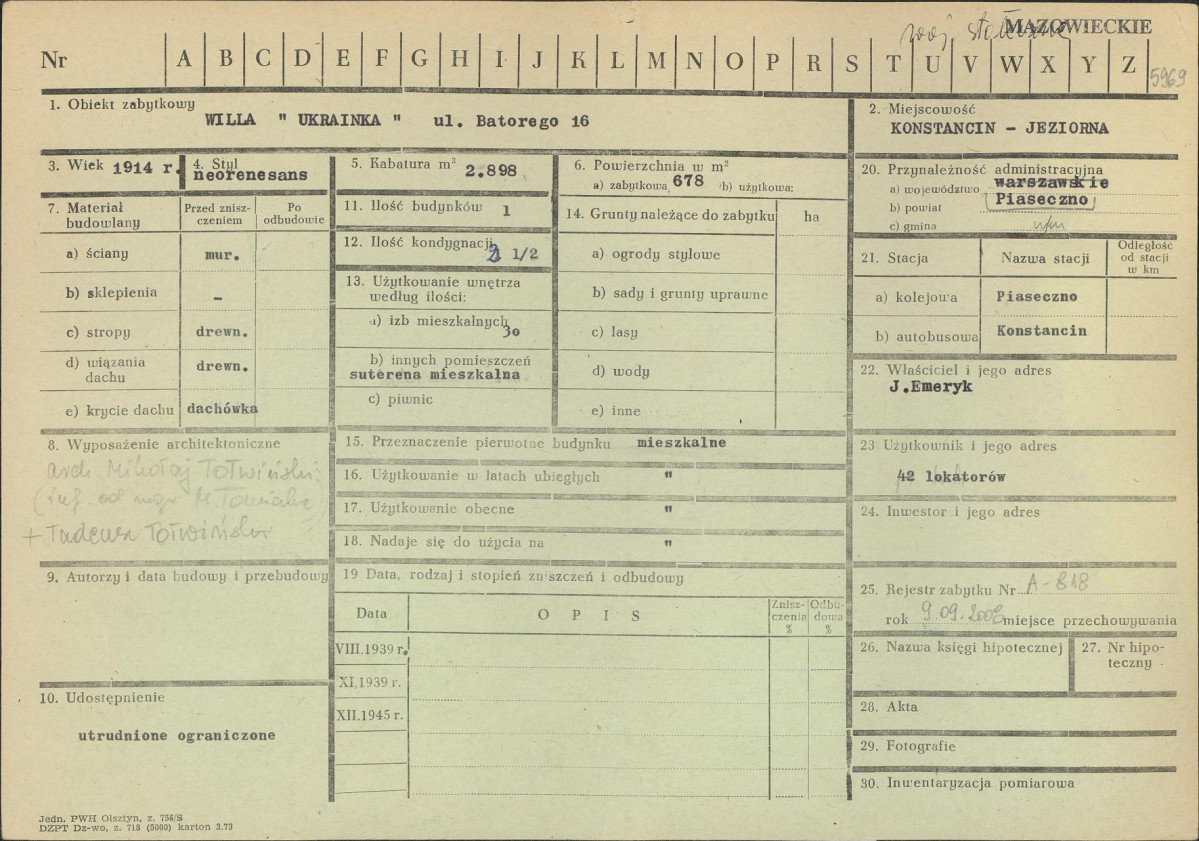 woj. stołeczne MAZOWIECKIE
Nr A B C D E F G H I J K L M N O P R S T U V W X Y Z 5969
1. Obiekt zabytkowy
WILLA " UKRAINKA " ul. Batorego 16
2. Miejscowość
KONSTANCIN - JEZIORNA
3. Wiek 1914 r.
4. Styl
neorenesans
5. Kabatura m³ 2.898
6. Powierzchnia w m²
a) zabytkowa 678 b) użytkowa:
20. Przynależność administracyjna
a) województwo warszawskie
b) powiat Piaseczno
c) gmina
7. Materiał budowlany
Przed znisz-
czeniem
Po
odbudowie
a) ściany mur.
b) sklepienia -
c) stropy drewn.
d) wiązania
dachu drewn.
e) krycie dachu dachówka
11. Ilość budynków 1
12. Ilość kondygnacji 2 1/2
13. Użytkowanie wnętrza
według ilości:
a) izb mieszkalnych 30
b) innych pomieszczeń
suterena mieszkalna
c) piwnic
14. Grunty należące do zabytku ha
a) ogrody stylowe
b) sady i grunty uprawne
c) lasy
d) wody
e) inne
21. Stacja Nazwa stacji
Odległość
od stacji
w km
a) kolejowa Piaseczno
b) autobusowa Konstancin
22. Właściciel i jego adres
J.Emeryk
8. Wyposażenie architektoniczne
arch. Mikołaj Tołwiński
(inf. od mgr M.
+ Tadeusz Tołwiński
15. Przeznaczenie pierwotne budynku mieszkalne
16. Użytkowanie w latach ubiegłych "
17. Użytkowanie obecne "
18. Nadaje się do użycia na "
23 Użytkownik i jego adres
42 lokatorów
24. Inwestor i jego adres
9. Autorzy i data budowy i przebudowy
19 Data, rodzaj i stopień zniszczeń i odbudowy
Data O P I S
Znisz-
czenia
%
Odbu-
dowa
%
VIII.1939 r.
XI,1939 r.
XII.1945 r.
25. Rejestr zabytku Nr A-818
rok 9.09.2006 miejsce przechowywania
26. Nazwa księgi hipotecznej
27. Nr hipo-
teczny
10. Udostępnienie
utrudnione ograniczone
28. Akta
29. Fotografie
30. Inwentaryzacja pomiarowa
Jedn. PWH Olsztyn, z. 756/S
DZPT Dz-wo, z. 718 (5000) karton 3.73